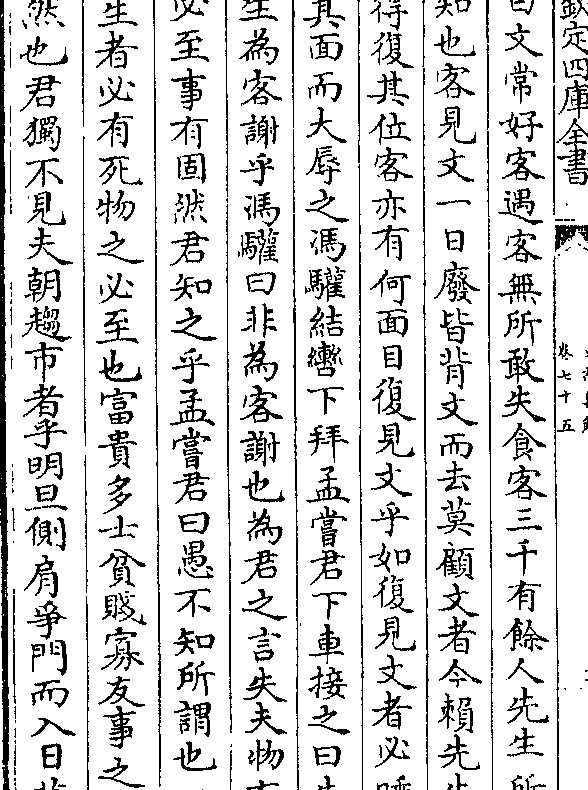 欽定四庫全書
卷七十五
曰文常好客遇客無所敢失食客三千有餘人先生所
知也客見文一日廢皆背文而去莫顧文者今賴先生
得復其位客亦有何面目復見文乎如復見文者必唾
其面而大辱之馮驩結轡下拜孟嘗君下車接之曰先
生為客謝乎馮驩曰非為客謝也為君之言失夫物有
必至事有固然君知之乎孟嘗君曰愚不知所謂也
生者必有死物之必至也富貴多士貧賤寡友事之
然也君獨不見夫朝趨市者乎明旦側肩爭門而入日